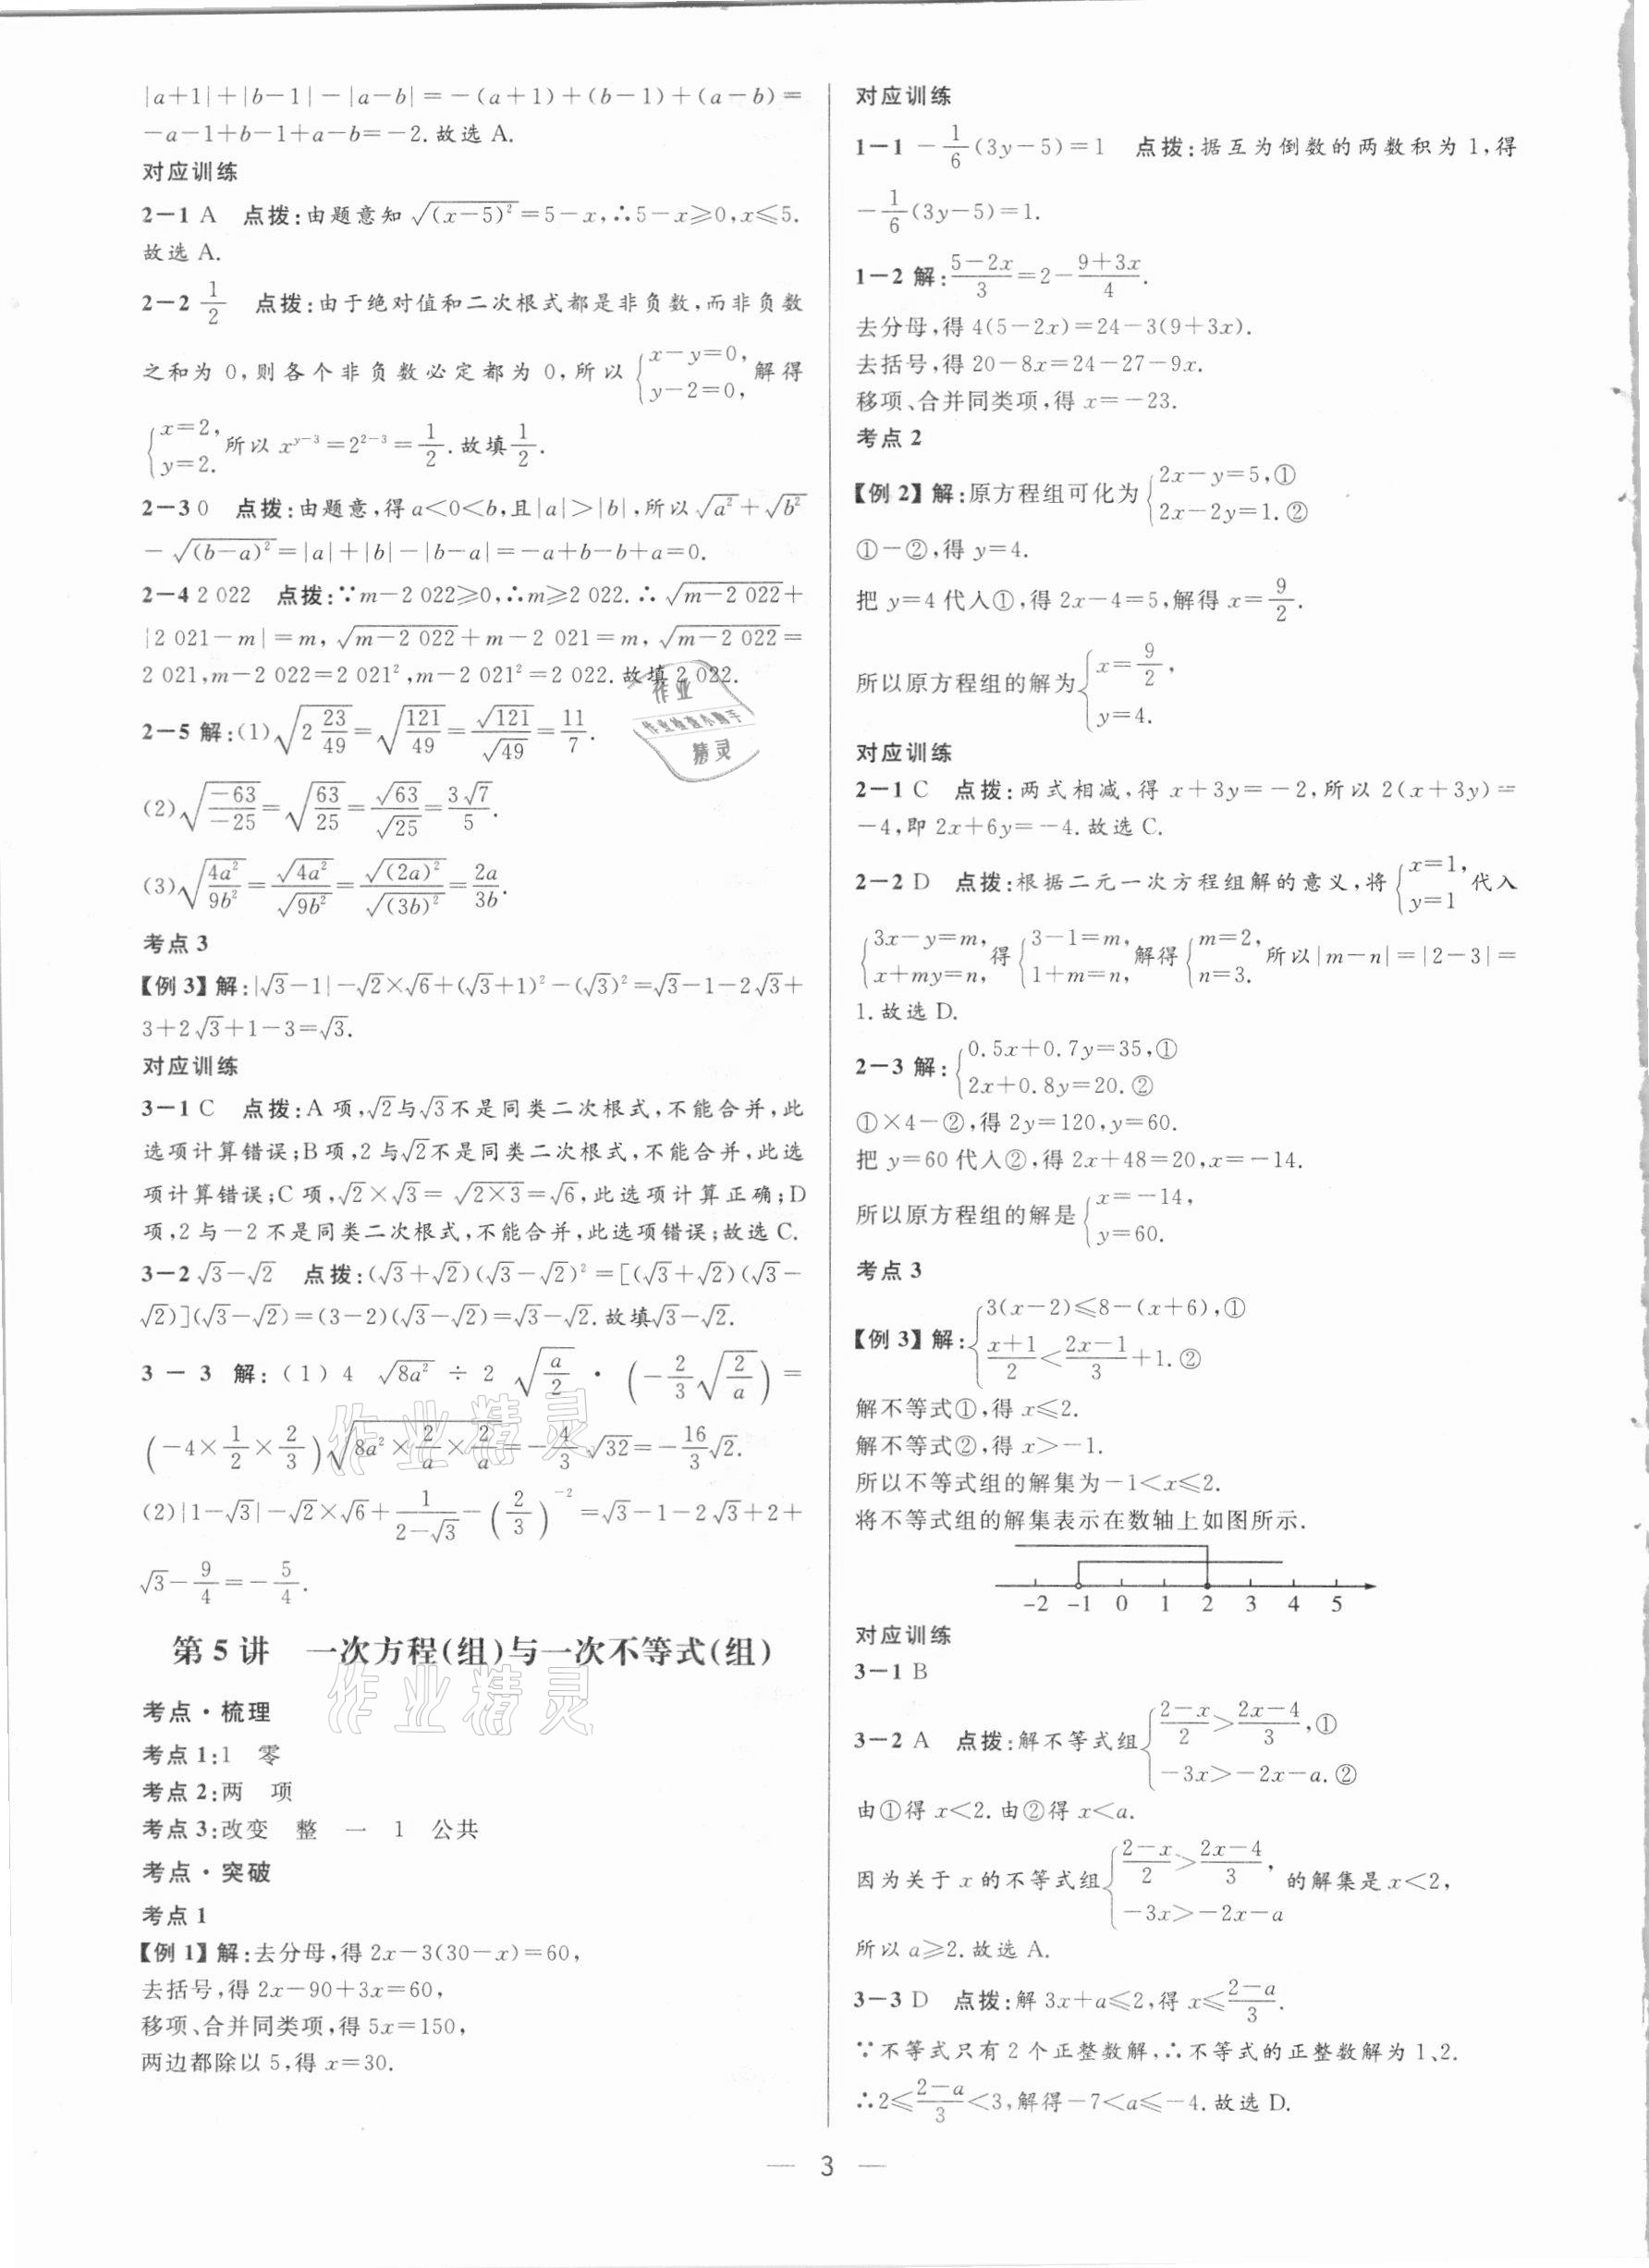 |a+1|+|b-1|-|a-b|=-(a+1)+(b-1)+(a-b)=
-a-1+b-1+a-b=-2.故选 A.
对应训练
2-1 A 点拨:由题意知 √(x-5)²=5-x,∴5-x≥0,x≤5.
故选 A.
2-2 1/2 点拨:由于绝对值和二次根式都是非负数,而非负数
之和为 0,则各个非负数必定都为 0,所以 {x-y=0, y-2=0, 解得
{x=2, y=2. 所以 x^(y-3)=2^(2-3)=1/2.故填1/2.
2-3 0 点拨:由题意,得 a<0<b,且|a|>|b|,所以 √a²+√b²
-√(b-a)²=|a|+|b|-|b-a|=-a+b-b+a=0.
2-4 2 022 点拨:∵m-2 022≥0,∴m≥2 022.∴√(m-2 022)+
|2 021-m|=m,√(m-2 022)+m-2 021=m,√(m-2 022)=
2 021,m-2 022=2 021²,m-2 021²=2 022.故填 2 022.
2-5 解:(1)√(2 23/49)=√(121/49)=√121/√49=11/7.
(2)√(-63/-25)=√(63/25)=√63/√25=3√7/5.
(3)√(4a²/9b²)=√4a²/√9b²=√(2a)²/√(3b)²=2a/3b.
考点 3
【例 3】解:|√3-1|-√2×√6+(√3+1)²-(√3)²=√3-1-2√3+
3+2√3+1-3=√3.
对应训练
3-1 C 点拨:A 项,√2与√3不是同类二次根式,不能合并,此
选项计算错误;B 项,2 与√2不是同类二次根式,不能合并,此选
项计算错误;C 项,√2×√3=√(2×3)=√6,此选项计算正确;D
项,2 与-2 不是同类二次根式,不能合并,此选项错误;故选 C.
3-2 √3-√2 点拨:(√3+√2)(√3-√2)²=[(√3+√2)(√3-
√2)](√3-√2)=(3-2)(√3-√2)=√3-√2.故填√3-√2.
3-3 解:(1)4 √8a² ÷ 2 √(a/2) · (-2/3 √(2/a)) =
(-4×1/2×2/3)√(8a²×2/a×2/a)=-4/3 √32=-16/3 √2.
(2)|1-√3|-√2×√6+1/(2-√3)-(2/3)^-2=√3-1-2√3+2+
√3-9/4=-5/4.
第 5 讲 一次方程(组)与一次不等式(组)
考点·梳理
考点 1:1 零
考点 2:两 项
考点 3:改变 整 一 1 公共
考点·突破
考点 1
【例 1】解:去分母,得 2x-3(30-x)=60,
去括号,得 2x-90+3x=60,
移项、合并同类项,得 5x=150,
两边都除以 5,得 x=30.
对应训练
1-1 -1/6(3y-5)=1 点拨:据互为倒数的两数积为 1,得
-1/6(3y-5)=1.
1-2 解:(5-2x)/3=2-(9+3x)/4.
去分母,得 4(5-2x)=24-3(9+3x).
去括号,得 20-8x=24-27-9x.
移项、合并同类项,得 x=-23.
考点 2
【例 2】解:原方程组可化为{2x-y=5,① 2x-2y=1.②
①-②,得 y=4.
把 y=4 代入①,得 2x-4=5,解得 x=9/2.
所以原方程组的解为{x=9/2, y=4.
对应训练
2-1 C 点拨:两式相减,得 x+3y=-2,所以 2(x+3y)=
-4,即 2x+6y=-4.故选 C.
2-2 D 点拨:根据二元一次方程组解的意义,将{x=1, y=1 代入
{3x-y=m, x+my=n, 得{3-1=m, 1+m=n, 解得{m=2, n=3. 所以|m-n|=|2-3|=
1.故选 D.
2-3 解:{0.5x+0.7y=35,① 2x+0.8y=20.②
①×4-②,得 2y=120,y=60.
把 y=60 代入②,得 2x+48=20,x=-14.
所以原方程组的解是{x=-14, y=60.
考点 3
【例 3】解:{3(x-2)≤8-(x+6),① (x+1)/2<(2x-1)/3+1.②
解不等式①,得 x≤2.
解不等式②,得 x>-1.
所以不等式组的解集为-1<x≤2.
将不等式组的解集表示在数轴上如图所示.
-2 -1 0 1 2 3 4 5
对应训练
3-1 B
3-2 A 点拨:解不等式组{(2-x)/2>(2x-4)/3,① -3x>-2x-a.②
由①得 x<2.由②得 x<a.
因为关于 x 的不等式组{(2-x)/2>(2x-4)/3, -3x>-2x-a 的解集是 x<2,
所以 a≥2.故选 A.
3-3 D 点拨:解 3x+a≤2,得 x≤(2-a)/3.
∵不等式只有 2 个正整数解,∴不等式的正整数解为 1、2.
∴2≤(2-a)/3<3,解得-7<a≤-4.故选 D.
— 3 —
作业
作业检查小助手
精灵
作业精灵
作业精灵